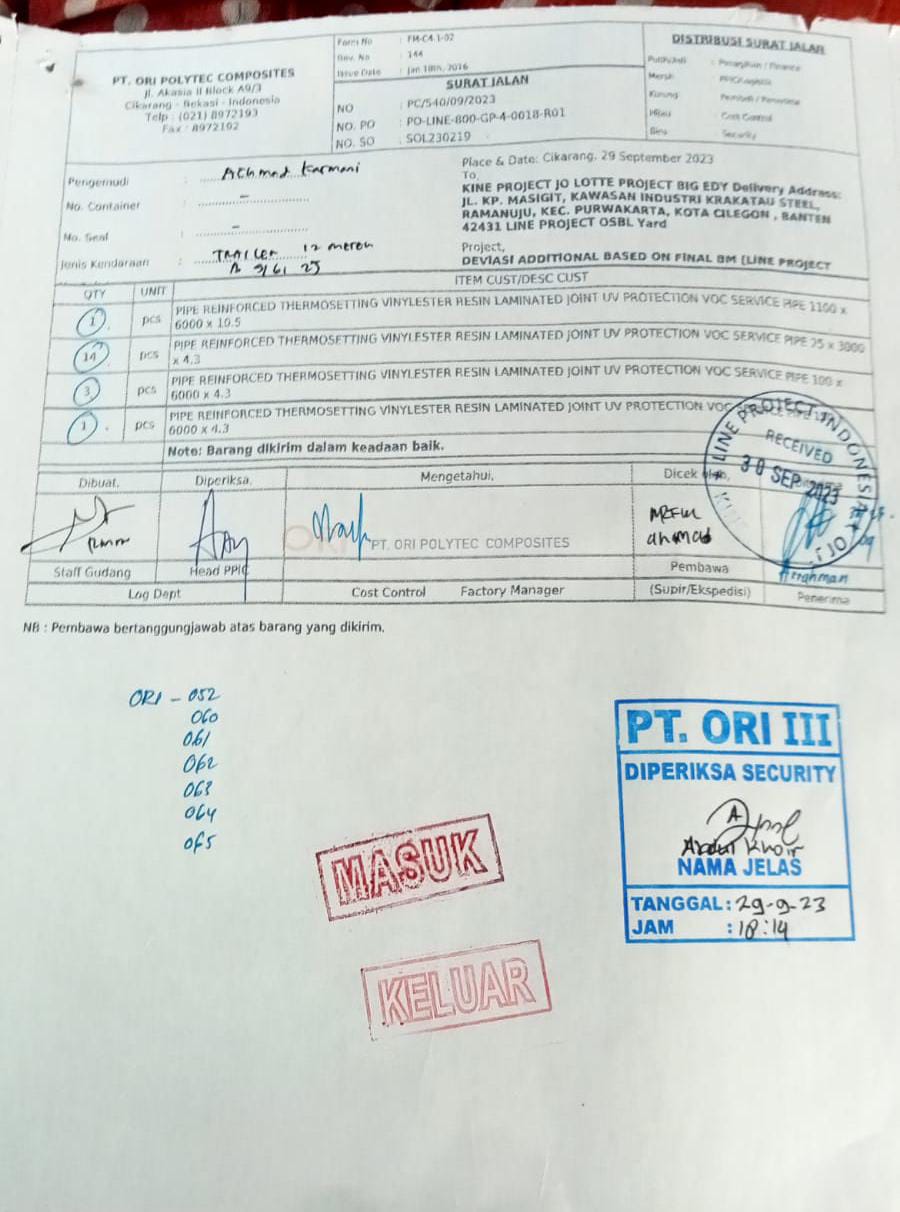 PT. ORI POLYTEC COMPOSITES
Jl. Akasia II Block A9/3
Cikarang - Bekasi - Indonesia
Telp : (021) 8972193
Fax : 8972192
Form No : FM-C4.1-02
Rev. No : 144
Issue Date : Jan 18th, 2016
SURAT JALAN
NO : PC/540/09/2023
NO. PO : PO-LINE-800-GP-4-0018-R01
NO. SO : SOL230219
DISTRIBUSI SURAT JALAN
Putih/Asli : Penagihan / Finance
Merah : PPIC/Logistik
Kuning : Pembeli / Penerima
Hijau : Cost Control
Biru : Security
Pengemudi : Achmad Karmani
No. Container : -
No. Seal : -
Jenis Kendaraan : TRAILER 12 meter
Place & Date: Cikarang, 29 September 2023
To,
KINE PROJECT JO LOTTE PROJECT BIG EDY Delivery Address:
JL. KP. MASIGIT, KAWASAN INDUSTRI KRAKATAU STEEL,
RAMANUJU, KEC. PURWAKARTA, KOTA CILEGON , BANTEN
42431 LINE PROJECT OSBL Yard
Project,
DEVIASI ADDITIONAL BASED ON FINAL BM (LINE PROJECT
QTY UNIT ITEM CUST/DESC CUST
1 pcs PIPE REINFORCED THERMOSETTING VINYLESTER RESIN LAMINATED JOINT UV PROTECTION VOC SERVICE PIPE 1100 x
6000 x 10.5
14 pcs PIPE REINFORCED THERMOSETTING VINYLESTER RESIN LAMINATED JOINT UV PROTECTION VOC SERVICE PIPE 25 x 3000
x 4.3
3 pcs PIPE REINFORCED THERMOSETTING VINYLESTER RESIN LAMINATED JOINT UV PROTECTION VOC SERVICE PIPE 100 x
6000 x 4.3
1 pcs PIPE REINFORCED THERMOSETTING VINYLESTER RESIN LAMINATED JOINT UV PROTECTION VOC
6000 x 4.3
Note: Barang dikirim dalam keadaan baik.
LINE PROJECT INDONESIA
RECEIVED
30 SEP 2023
Dibuat, Diperiksa, Mengetahui, Dicek
PT. ORI POLYTEC COMPOSITES
ahmad
Staff Gudang Head PPIC Pembawa
Log Dept Cost Control Factory Manager (Supir/Ekspedisi) Penerima
NB : Pembawa bertanggungjawab atas barang yang dikirim.
ORI - 052
060
061
062
063
064
065
PT. ORI III
DIPERIKSA SECURITY
Abdul Khoir
NAMA JELAS
TANGGAL : 29-9-23
JAM : 18:14
MASUK
KELUAR